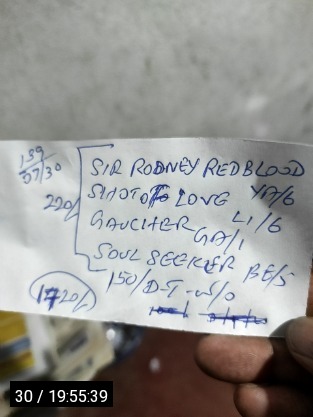 159
07/30
SIR RODNEY REDBLOOD
SHOT OF LOVE YA/6
220/
GAUCHER LI/6
GA/1
SOUL SEEKER BE/5
1720/
150/DT-W/O
30 / 19:55:39